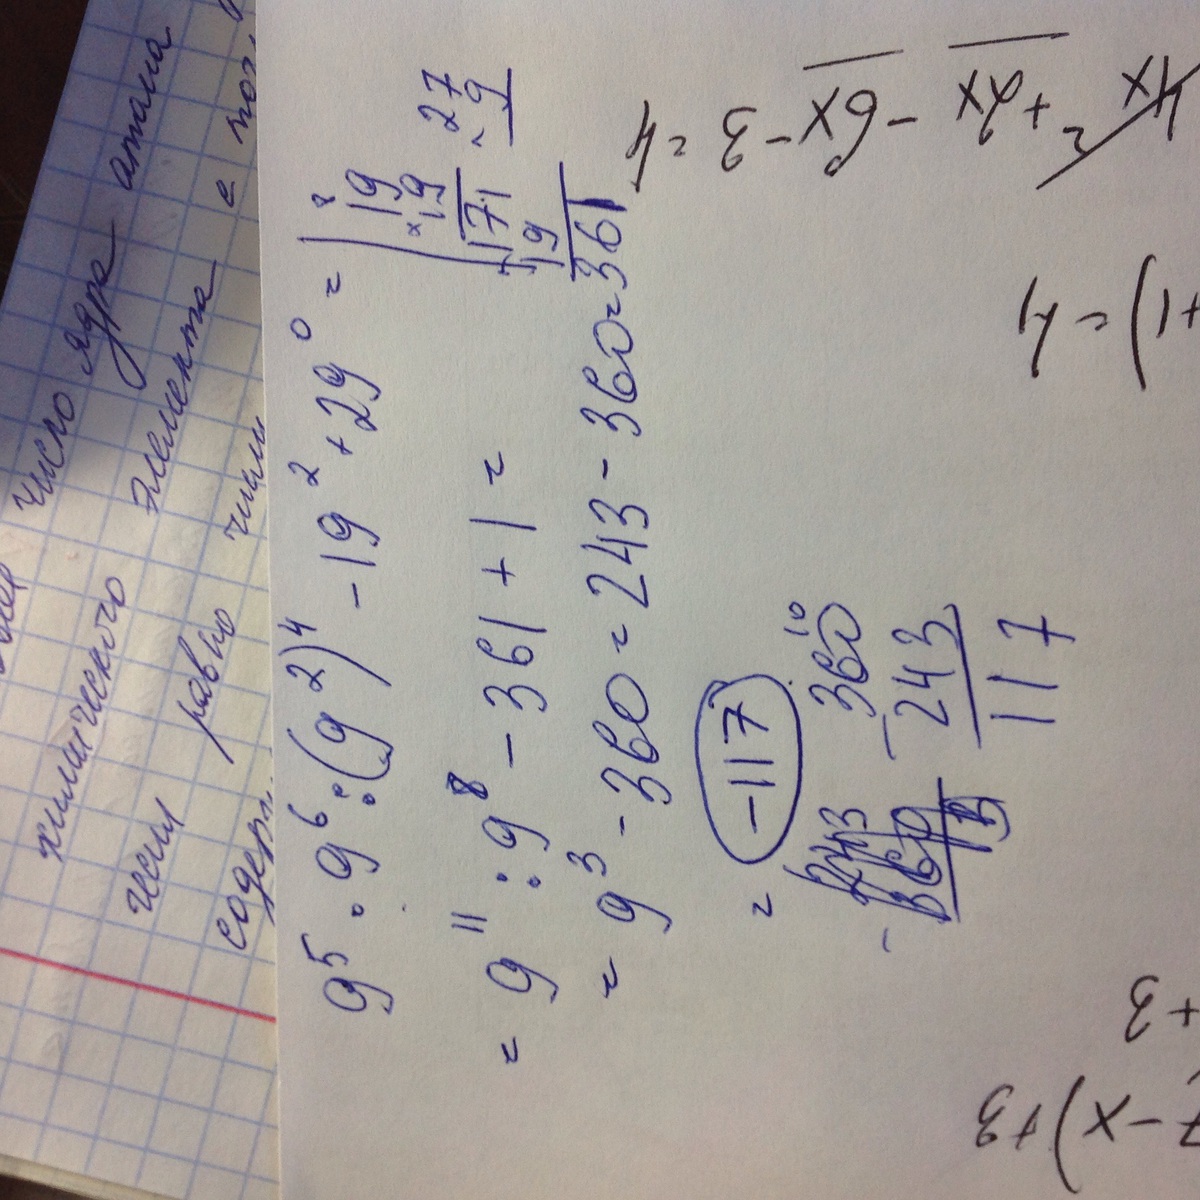 число ядра атома
химического элемента
равно числу
9⁵ · 9⁶ : (9²)⁴ - 19² + 29⁰ =
= 9¹¹ : 9⁸ - 361 + 1 =
= 9³ - 360 = 243 - 360 =
= -117
² 19
× 19
171
+ 19
361
27
× 9
10
360
- 243
117
243
- 360
4x² + 2x - 6x - 3 = 4
+1) = 4
+3
7 - x) + 3